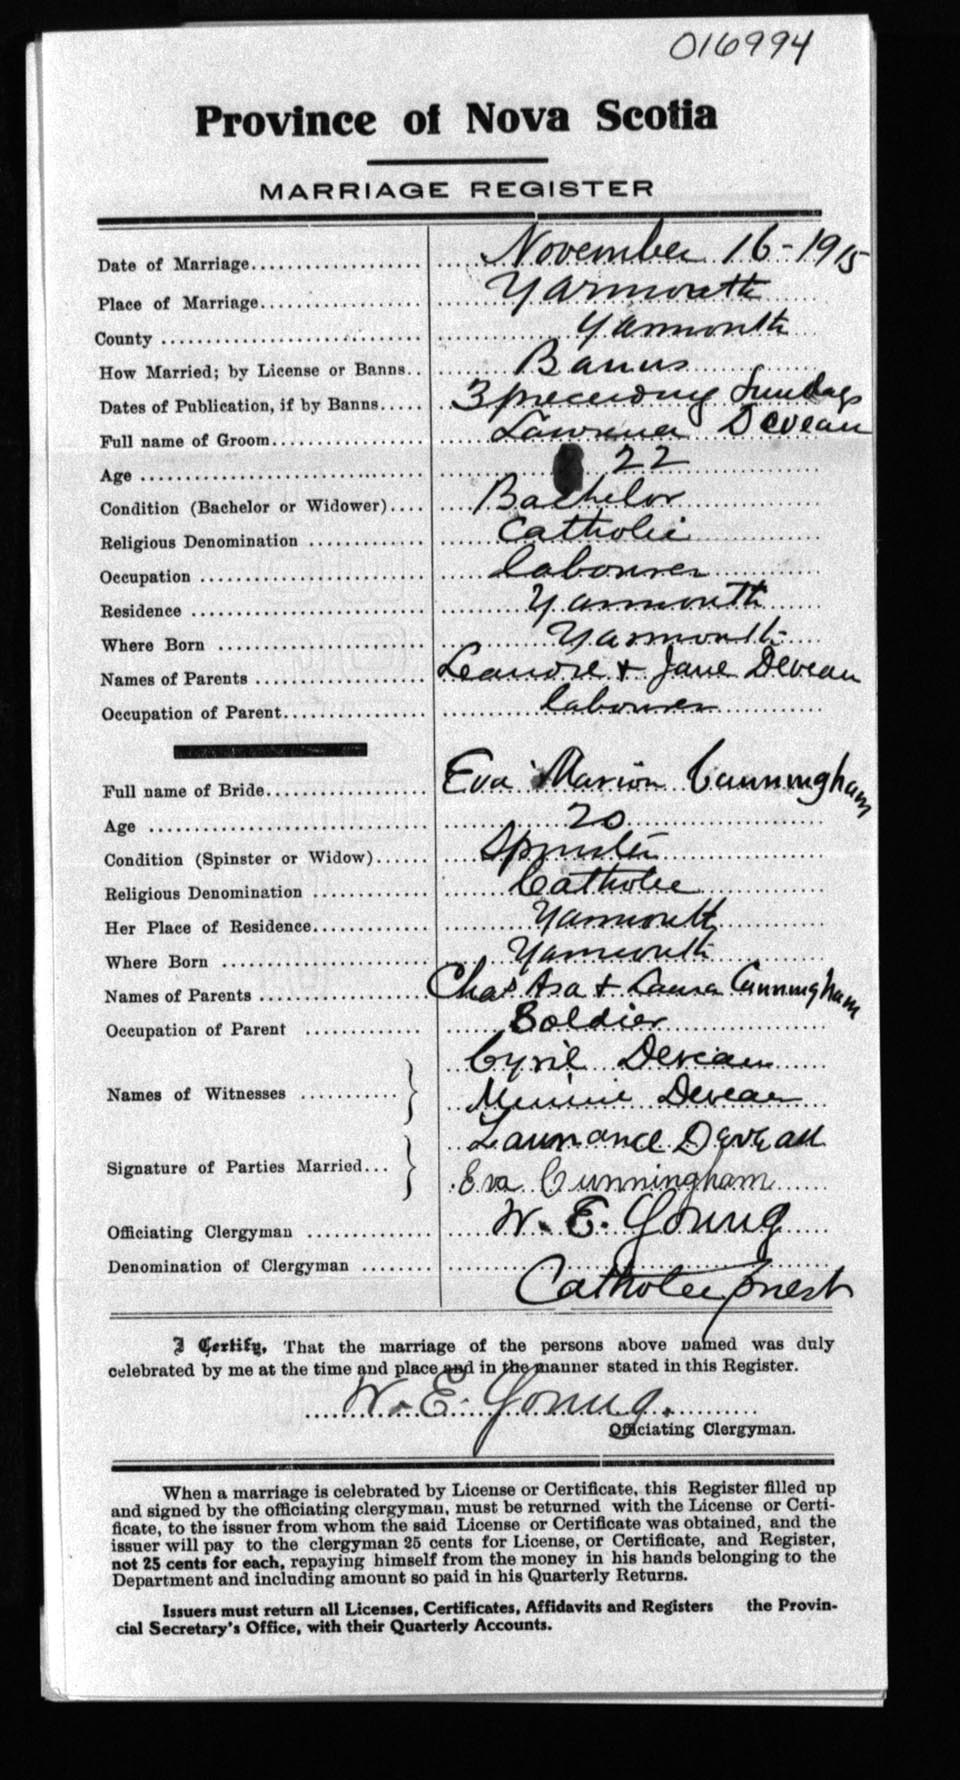 016994
Province of Nova Scotia
MARRIAGE REGISTER
Date of Marriage.................... November 16-1915
Place of Marriage................... Yarmouth
County ............................. Yarmouth
How Married; by License or Banns.. Banns
Dates of Publication, if by Banns..... 3 preceding Sundays
Full name of Groom.................. Lawrence Deveau
Age ................................ 22
Condition (Bachelor or Widower).... Bachelor
Religious Denomination ............. Catholic
Occupation ......................... labourer
Residence .......................... Yarmouth
Where Born ......................... Yarmouth
Names of Parents ................... Leandre + Jane Deveau
Occupation of Parent................ labourer
Full name of Bride.................. Eva Marion Cunningham
Age ................................ 20
Condition (Spinster or Widow)...... Spinster
Religious Denomination ............. Catholic
Her Place of Residence.............. Yarmouth
Where Born ......................... Yarmouth
Names of Parents ................... Chas Asa + Laura Cunningham
Occupation of Parent ............... Soldier
Names of Witnesses ............ } Cyril Deveau
Minnie Deveau
Signature of Parties Married... } Laurance Deveau
Eva Cunningham
Officiating Clergyman .............. W. E. Young
Denomination of Clergyman ........ Catholic priest
I Certify, That the marriage of the persons above named was duly
celebrated by me at the time and place and in the manner stated in this Register.
W. E. Young.
Officiating Clergyman.
When a marriage is celebrated by License or Certificate, this Register filled up
and signed by the officiating clergyman, must be returned with the License or Certi-
ficate, to the issuer from whom the said License or Certificate was obtained, and the
issuer will pay to the clergyman 25 cents for License, or Certificate, and Register,
not 25 cents for each, repaying himself from the money in his hands belonging to the
Department and including amount so paid in his Quarterly Returns.
Issuers must return all Licenses, Certificates, Affidavits and Registers the Provin-
cial Secretary's Office, with their Quarterly Accounts.